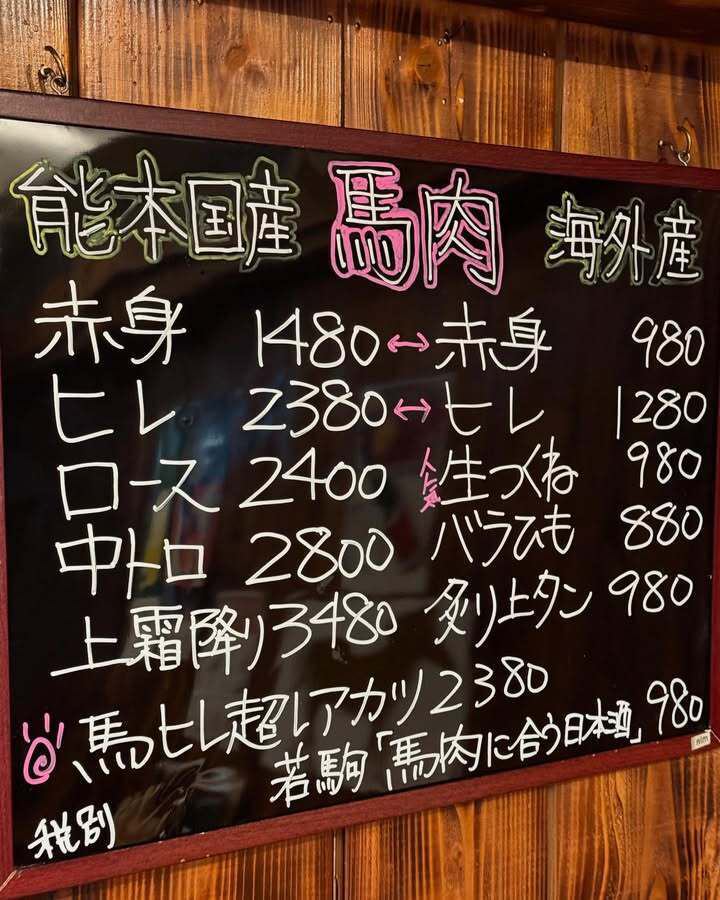 能本国産 馬肉 海外産
赤身 1480 ↔ 赤身 980
ヒレ 2380 ↔ ヒレ 1280
ロース 2400 人気 生つくね 980
中トロ 2800 バラひも 880
上霜降り 3480 炙り上タン 980
馬ヒレ超レアカツ 2380
若駒「馬肉に合う日本酒」 980
税別